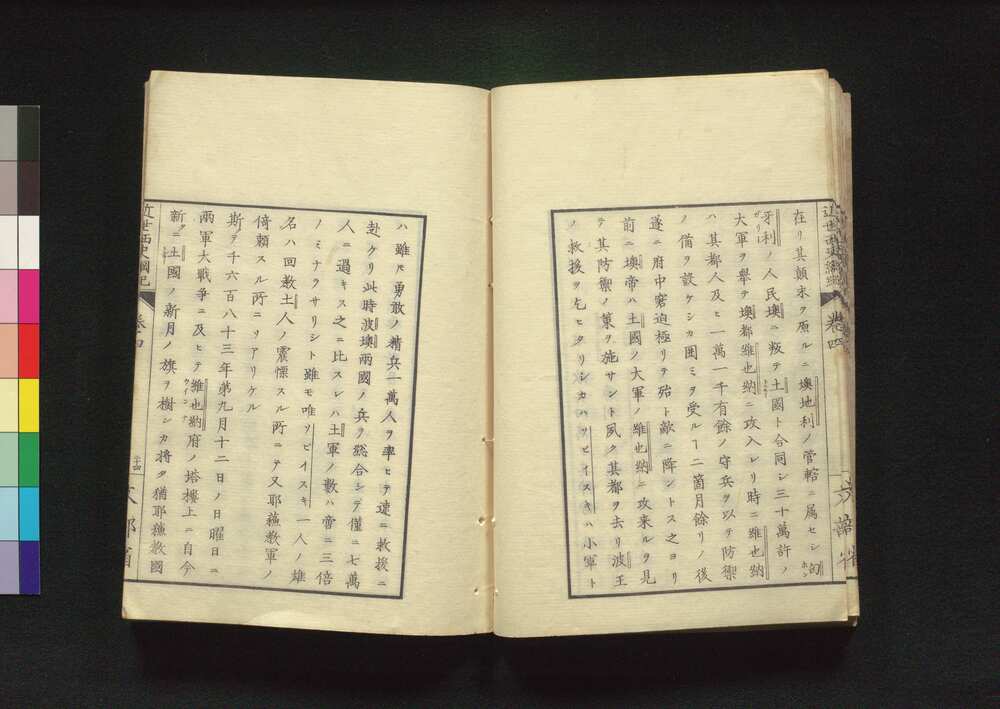 近世西史綱紀 卷四
在リ其顛末ヲ原ルニ墺地利ノ管轄ニ属セシ匈
牙利ノ人民墺ニ叛テ土國ト合同シ三十萬許ノ
大軍ヲ舉テ墺都維也納ニ攻入レリ時ニ維也納
ハ其都人及ヒ一萬一千有餘ノ守兵ヲ以テ防禦
ノ備ヲ設ケシカ囲ミヲ受ルヿ二箇月餘リノ後
遂ニ府中窘迫極リテ殆ト敵ニ降ントス之ヨリ
前ニ墺帝ハ土國ノ大軍ノ維也納ニ攻来ルヲ見
テ其防禦ノ策ヲ施サントテ夙ク其都ヲ去リ波王
ノ救援ヲ乞ヒタリシカハソビイスキハ小軍ト
ハ雖𪜈勇敢ノ精兵一萬人ヲ率ヒテ速ニ救援ニ
赴ケリ此時波墺兩國ノ兵ヲ総合シテ僅ニ七萬
人ニ過キス之ニ比スレハ土軍ノ數ハ帝ニ三倍
ノミナラサリシト雖モ唯ソビイスキ一人ノ雄
名ハ回教土人ノ震慄スル所ニテ又耶蘓教軍ノ
倚頼スル所ニソアリケル
斯テ千六百八十三年第九月十二日ノ日曜日ニ
兩軍大戦争ニ及ヒテ維也納府ノ塔樓上ニ自今
新タニ土國ノ新月ノ旗ヲ樹シカ将タ猶耶穌教國
近世西史綱紀 卷四 二十四 文部省